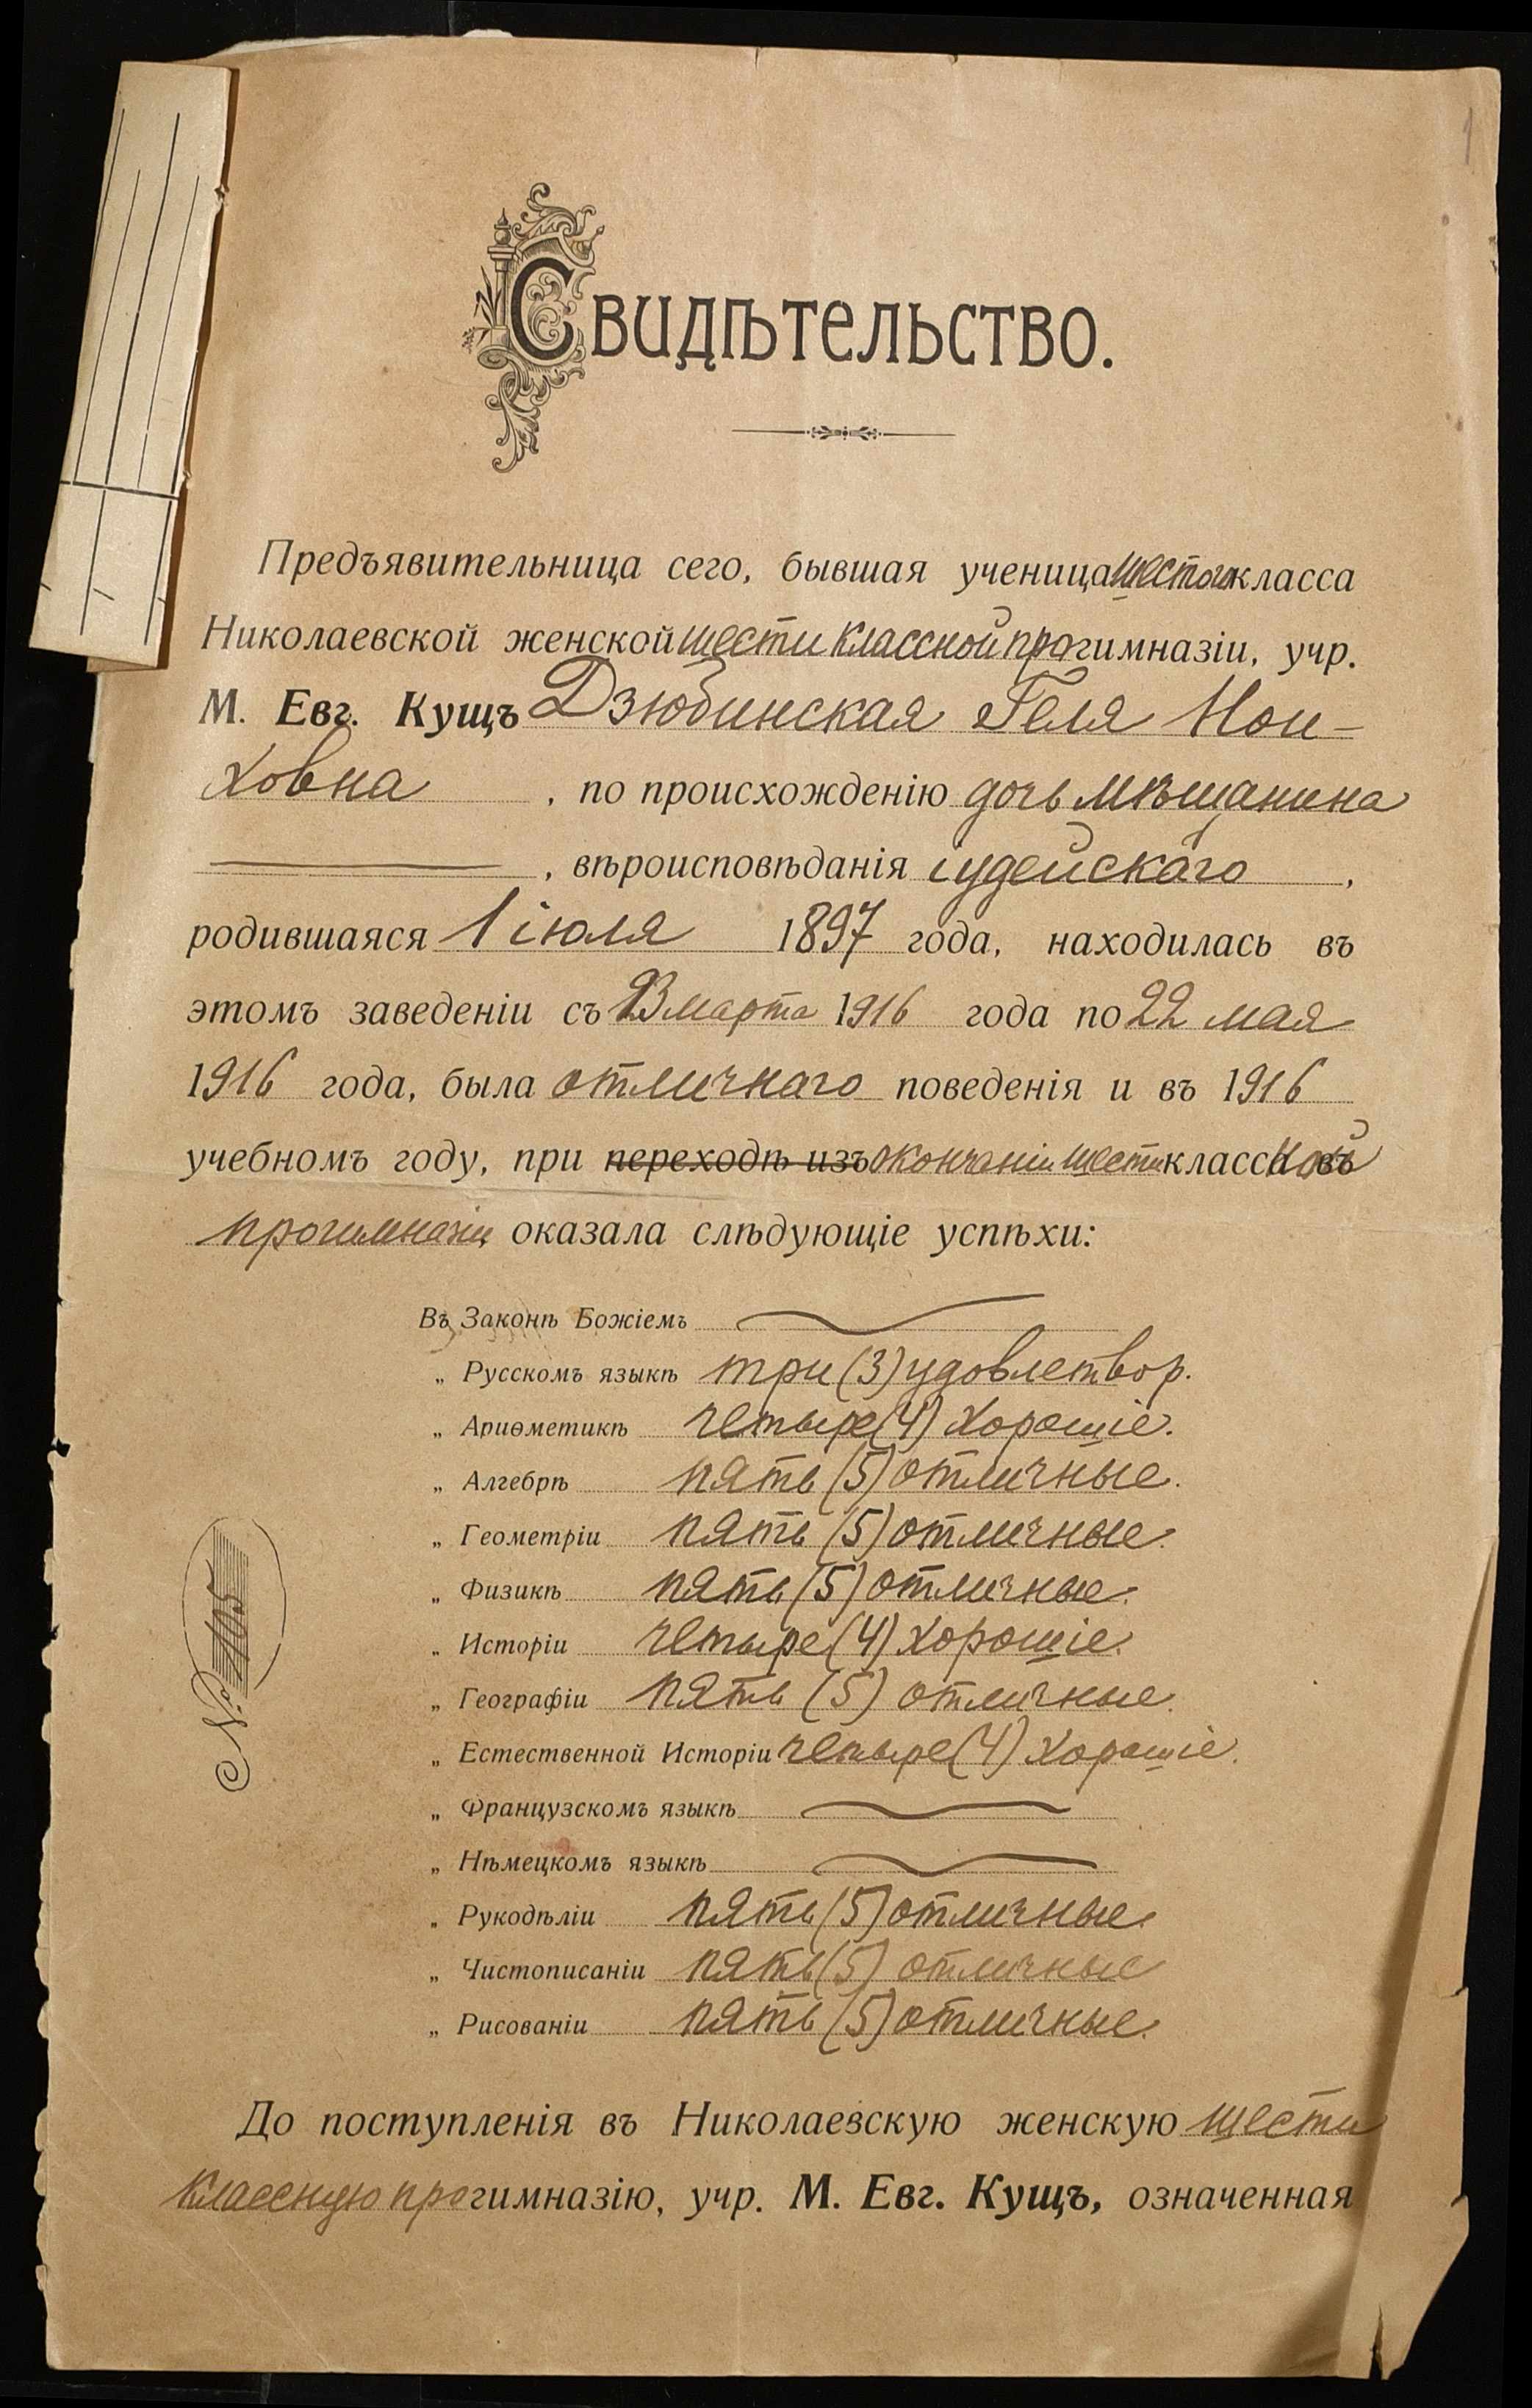 1
Свидѣтельство.
Предъявительница сего, бывшая ученица шестого класса
Николаевской женской шести классной прогимназіи, учр.
М. Евг. Кущъ Дзюбинская Геля Нои-
ховна , по происхожденію дочь мѣщанина
, вѣроисповѣданія іудейскаго ,
родившаяся 1 іюля 1897 года, находилась въ
этомъ заведеніи съ 23 марта 1916 года по 22 мая
1916 года, была отличнаго поведенія и въ 1916
учебномъ году, при переходѣ изъ окончаніи шестиклассной въ
прогимназіи оказала слѣдующіе успѣхи:
Въ Законѣ Божіемъ
„ Русскомъ языкѣ три (3) удовлетвор.
„ Ариѳметикѣ четыре (4) хорошіе.
„ Алгебрѣ пять (5) отличные.
„ Геометріи пять (5) отличные.
„ Физикѣ пять (5) отличные.
„ Исторіи четыре (4) хорошіе.
„ Географіи пять (5) отличные.
„ Естественной Исторіи четыре (4) хорошіе.
„ Французскомъ языкѣ
„ Нѣмецкомъ языкѣ
„ Рукодѣліи пять (5) отличные.
„ Чистописаніи пять (5) отличные
„ Рисованіи пять (5) отличные.
№ 105
До поступленія въ Николаевскую женскую шести
классную прогимназію, учр. М. Евг. Кущъ, означенная